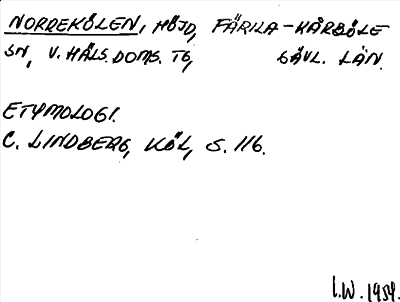 NORREKÖLEN, HÖJD, FÄRILA-KÅRBÖLE
SN, V. HÄLS. DOMS. TG, GÄVL. LÄN.
ETYMOLOGI.
C. LINDBERG, KÖL, S. 116.
I.W. 1954.